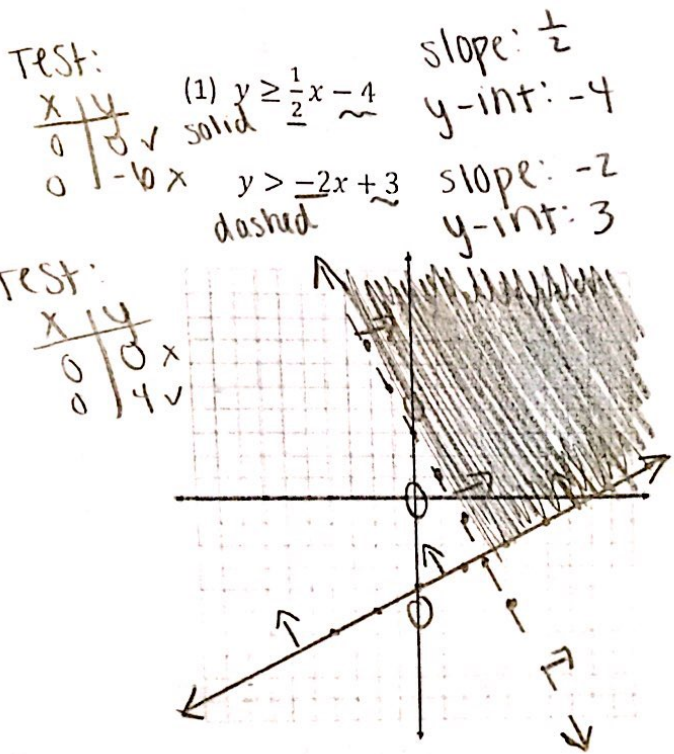 Test:
x | y
0 | 0 ✓
0 | -6 x
(1) y ≥ 1/2 x − 4
solid
slope: 1/2
y-int: -4
y > −2x + 3
dashed
slope: -2
y-int: 3
Test:
x | y
0 | 0 x
0 | 4 ✓